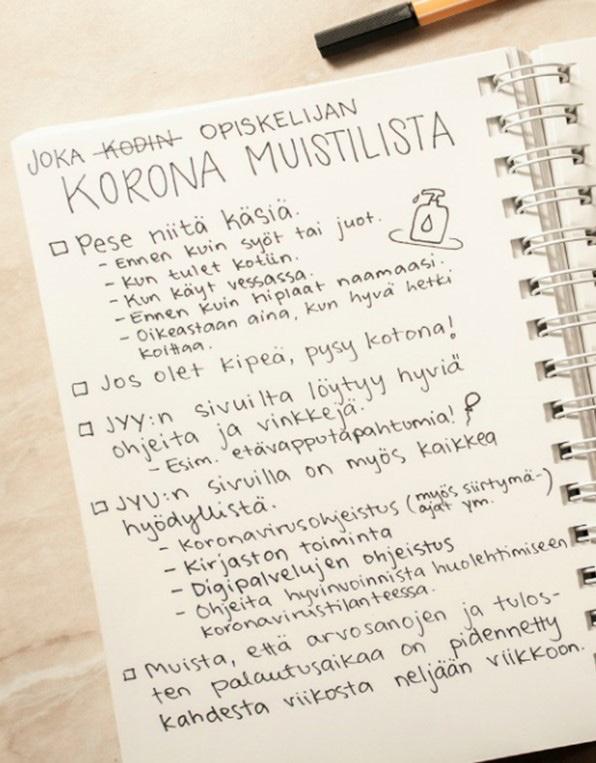 JOKA KODIN OPISKELIJAN
KORONA MUISTILISTA
Pese niitä käsiä.
- Ennen kuin syöt tai juot.
- Kun tulet kotiin.
- Kun käyt vessassa.
- Ennen kuin hiplaat naamaasi.
- Oikeastaan aina, kun hyvä hetki
koittaa.
Jos olet kipeä, pysy kotona!
JYY:n sivuilta löytyy hyviä
ohjeita ja vinkkejä.
- Esim. etävapputapahtumia!
JYU:n sivuilla on myös kaikkea
hyödyllistä.
- Koronavirusohjeistus (myös siirtymä-
ajat ym.)
- Kirjaston toiminta
- Digipalvelujen ohjeistus
- Ohjeita hyvinvoinnista huolehtimiseen
koronavirustilanteessa.
Muista, että arvosanojen ja tulos-
ten palautusaikaa on pidennetty
kahdesta viikosta neljään viikkoon.